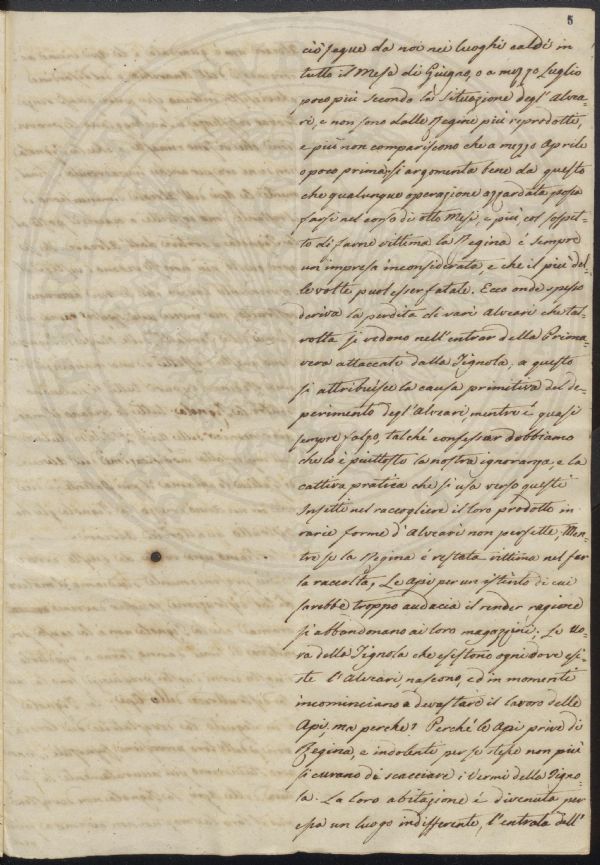 5
ciò segue da noi nei luoghi caldi in
tutto il Mese di Giugno, o a mezzo Luglio
poco più secondo la situazione degl'Alvea=
ri, e non sono dalle Regine più riprodotti,
e più non compariscono che a mezzo Aprile
o poco prima: si argomenta bene da questo
che qualunque operazione azzardata possa
farsi nel corso di otto Mesi, e più, col sospet=
to di farne vittima la Regina è sempre
un impresa inconsiderata, e che il più del=
le volte puol esser fatale. Ecco onde spesso
deriva la perdita di vari Alveari che tal=
volta si vedono nell'entrar della Prima=
vera attaccati dalla Tignola; a questo
si attribuisce la causa primitiva del de=
perimento degl'Alveari, mentre è quasi
sempre falso, talché confessar dobbiamo
che lo è piuttosto la nostra ignoranza, e la
cattiva pratica che si usa verso questi
Insetti nel raccogliere il loro prodotto in
varie forme d'Alveari non perfette, Men=
tre se la Regina è restata vittima nel far
la raccolta, Le Api per un istinto di cui
sarebbe troppo audacia il render ragione
si abbandonano ai loro magazzini; Le Uo=
va della Tignola che esistono ogni dove esi=
ste l'Alveari, nascono, ed in momenti
incominciano a devastare il lavoro delle
Api, ma perche? Perché le Api prive di
Regina, e indolenti per se stesse non più
si curano di scacciare i Vermi della Tigno=
la. La loro abitazione è divenuta per
essa un luogo indifferente, l'entrata dell'